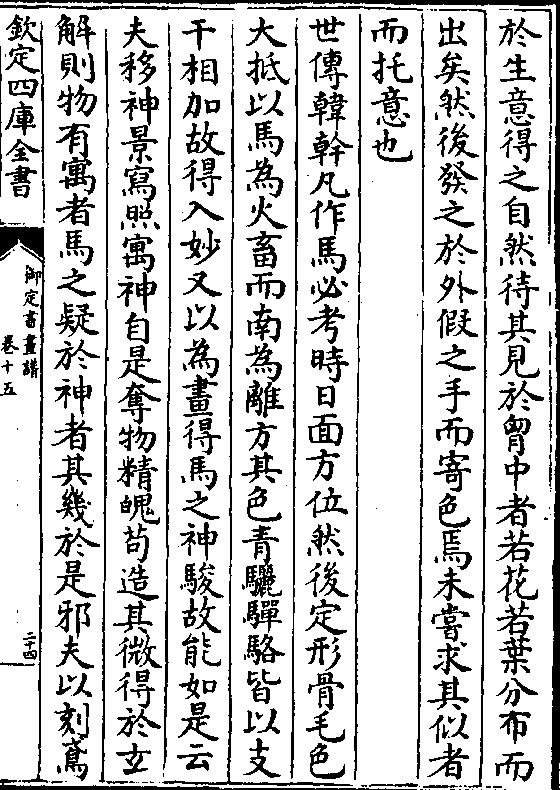 於生意得之自然待其見於胷中者若花若葉分布而
出矣然後發之於外假之手而寄色焉未嘗求其似者
而托意也
世傳韓幹凡作馬必考時日面方位然後定形骨毛色
大抵以馬為火畜而南為離方其色青驪驒駱皆以支
干相加故得入妙又以為畫得馬之神駿故能如是云
夫移神景寫照寓神自是奪物精魄茍造其微得於玄
解則物有寓者馬之疑於神者其幾於是邪夫以刻鳶
欽定四庫全書
御定書畫譜
卷十五
二十四